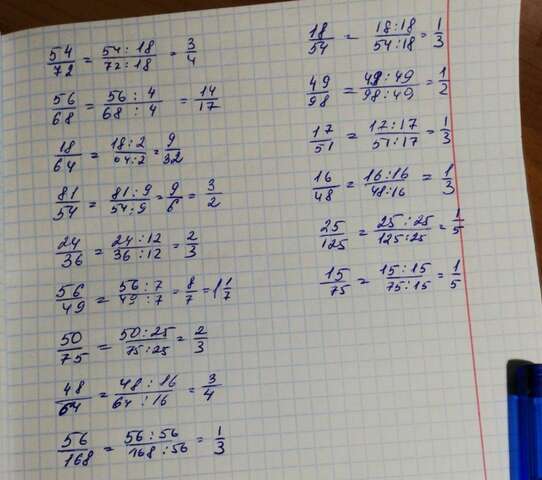 54/72 = 54:18/72:18 = 3/4
56/68 = 56:4/68:4 = 14/17
18/64 = 18:2/64:2 = 9/32
81/54 = 81:9/54:9 = 9/6 = 3/2
24/36 = 24:12/36:12 = 2/3
56/49 = 56:7/49:7 = 8/7 = 1 1/7
50/75 = 50:25/75:25 = 2/3
48/64 = 48:16/64:16 = 3/4
56/168 = 56:56/168:56 = 1/3
18/54 = 18:18/54:18 = 1/3
49/98 = 49:49/98:49 = 1/2
17/51 = 17:17/51:17 = 1/3
16/48 = 16:16/48:16 = 1/3
25/125 = 25:25/125:25 = 1/5
15/75 = 15:15/75:15 = 1/5